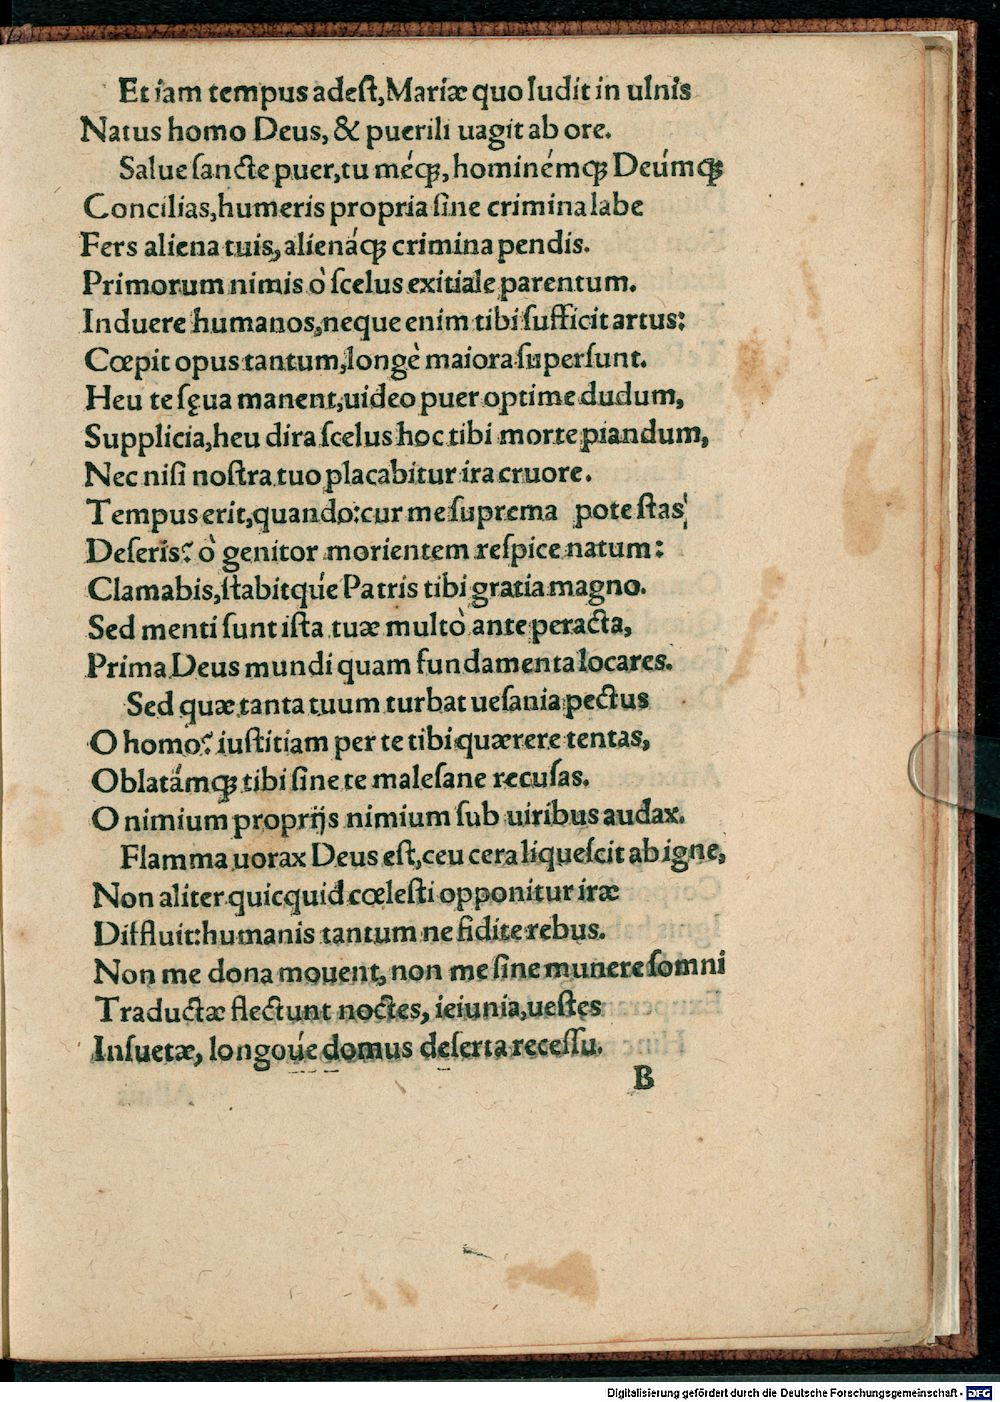 Et iam tempus adeſt, Mariæ quo ludit in ulnis
Natus homo Deus, & puerili uagit ab ore.
Salue ſancte puer, tu méqꝫ, hominémqꝫ Deúmqꝫ
Concilias, humeris propria ſine crimina labe
Fers aliena tuis, alienáqꝫ crimina pendis.
Primorum nimis ò ſcelus exitiale parentum.
Induere humanos, neque enim tibi ſufficit artus:
Cœpit opus tantum, longè maiora ſuperſunt.
Heu te ſęua manent, uideo puer optime dudum,
Supplicia, heu dira ſcelus hoc tibi morte piandum,
Nec niſi noſtra tuo placabitur ira cruore.
Tempus erit, quando: cur me ſuprema poteſtas
Deſeris? ò genitor morientem reſpice natum:
Clamabis, ſtabitqúe Patris tibi gratia magno.
Sed menti ſunt iſta tuæ multò ante peracta,
Prima Deus mundi quam fundamenta locares.
Sed quæ tanta tuum turbat ueſania pectus
O homo? iuſtitiam per te tibi quærere tentas,
Oblatámqꝫ tibi ſine te maleſane recuſas.
O nimium proprijs nimium ſub uiribus audax.
Flamma uorax Deus eſt, ceu cera liqueſcit ab igne,
Non aliter quicquid cœleſti opponitur iræ
Diffluit: humanis tantum ne fidite rebus.
Non me dona mouent, non me ſine munere ſomni
Traductæ flectunt noctes, ieiunia, ueſtes
Inſuetæ, longoúe domus deſerta receſſu.
B
Digitalisierung gefördert durch die Deutsche Forschungsgemeinschaft - DFG